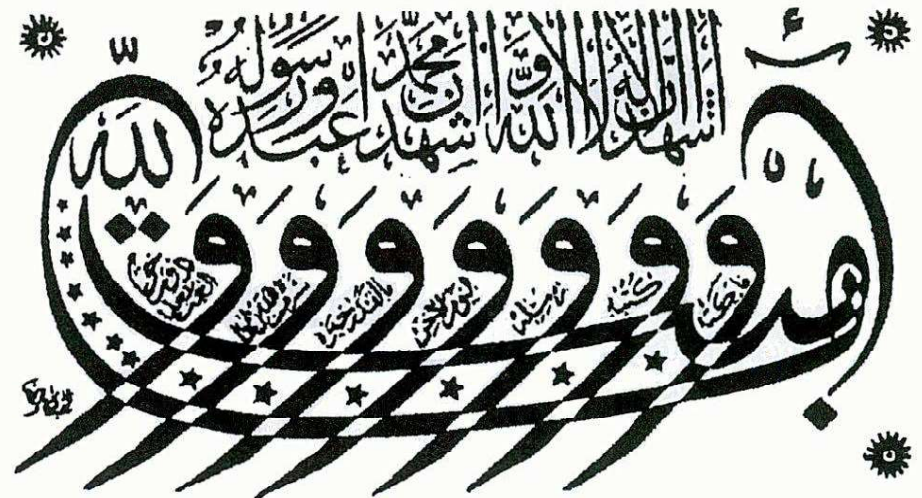 اشهد ان لا اله الا الله و اشهد ان محمدا عبده ورسوله
آمنت بالله و ملائكته و كتبه و رسله و اليوم الاخر و بالقدر خيره و شره من الله تعالى و البعث بعد الموت حق